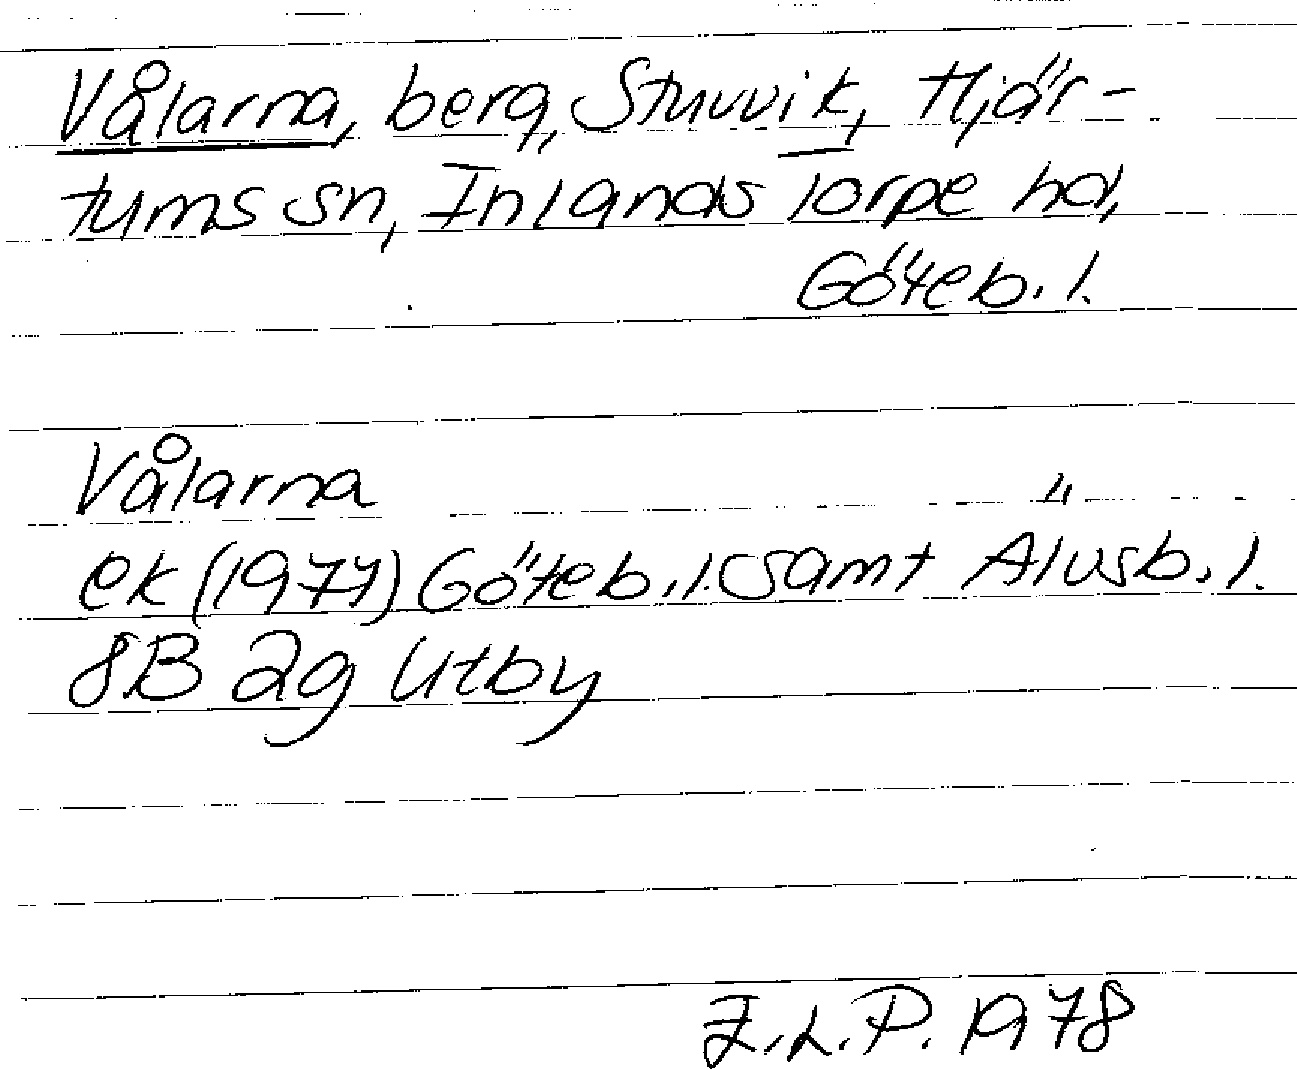 Vålarna, berg, Stuvvik, Hjär-
tums sn, Inlands Torpe hd,
Göteb. l.
Vålarna
ek (1977) Göteb. l. samt Älvsb. l.
8B 2g Utby
Z.L.P. 1978